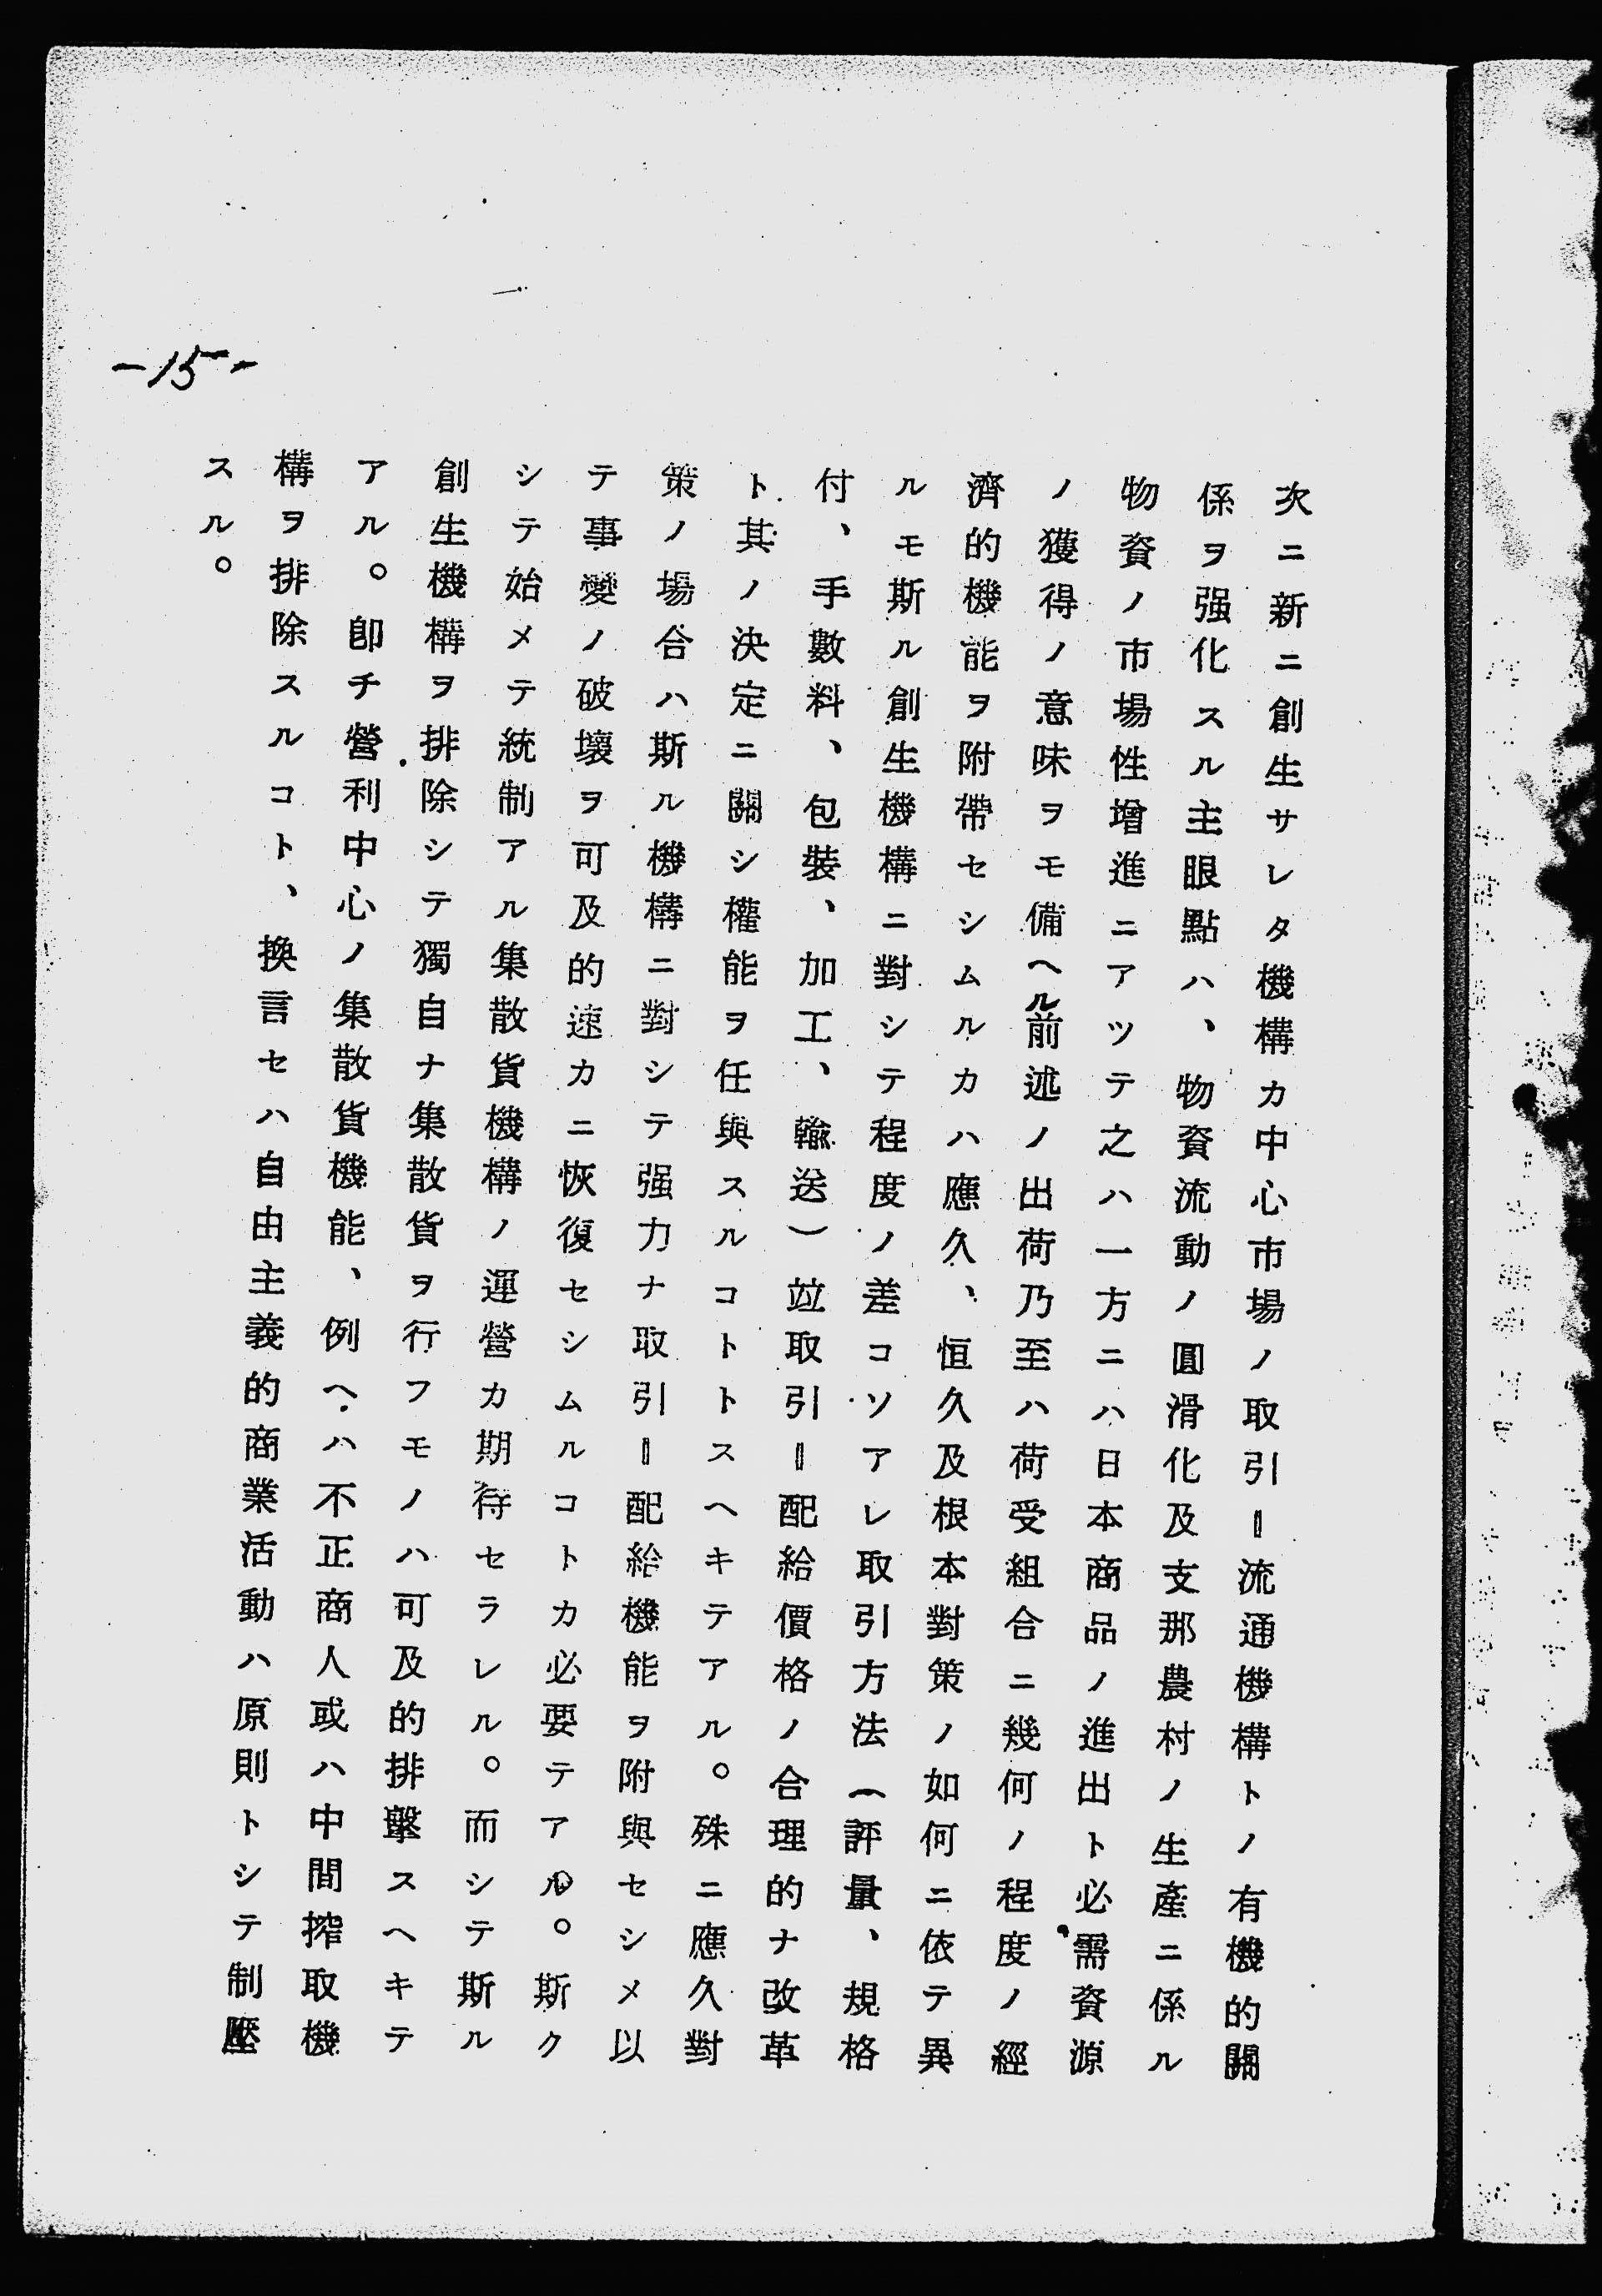 次ニ新ニ創生サレタ機構カ中心市場ノ取引＝流通機構トノ有機的關
係ヲ强化スル主眼點ハ、物資流動ノ圓滑化及支那農村ノ生產ニ係ル
物資ノ市場性增進ニアツテ之ハ一方ニハ日本商品ノ進出ト必需資源
ノ獲得ノ意味ヲモ備ヘル前述ノ出荷乃至ハ荷受組合ニ幾何ノ程度ノ經
濟的機能ヲ附帶セシムルカハ應久、恒久及根本對策ノ如何ニ依テ異
ルモ斯ル創生機構ニ對シテ程度ノ差コソアレ取引方法（評量、規格
付、手數料、包裝、加工、輸送）竝取引＝配給價格ノ合理的ナ改革
ト其ノ決定ニ關シ權能ヲ任與スルコトトスヘキテアル。殊ニ應久對
策ノ場合ハ斯ル機構ニ對シテ强力ナ取引＝配給機能ヲ附與セシメ以
テ事變ノ破壞ヲ可及的速カニ恢復セシムルコトカ必要テアル。斯ク
シテ始メテ統制アル集散貨機構ノ運營カ期待セラレル。而シテ斯ル
創生機構ヲ排除シテ獨自ナ集散貨ヲ行フモノハ可及的排擊スヘキテ
アル。卽チ營利中心ノ集散貨機能、例ヘハ不正商人或ハ中間搾取機
構ヲ排除スルコト、換言セハ自由主義的商業活動ハ原則トシテ制壓
スル。
-15-